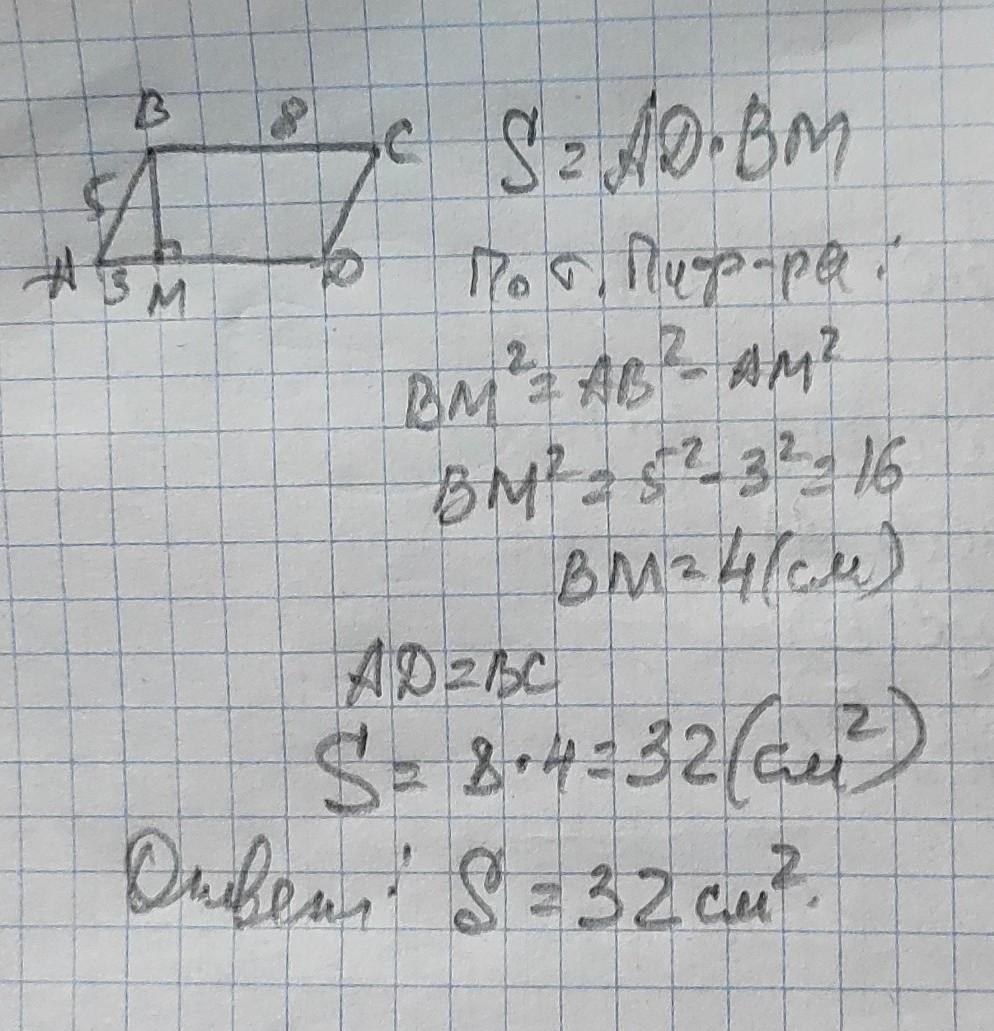 B 8 C
5
A 3 M D
S = AD · BM
По т. Пиф-ра:
BM² = AB² - AM²
BM² = 5² - 3² = 16
BM = 4 (см)
AD = BC
S = 8 · 4 = 32 (см²)
Ответ: S = 32 см².